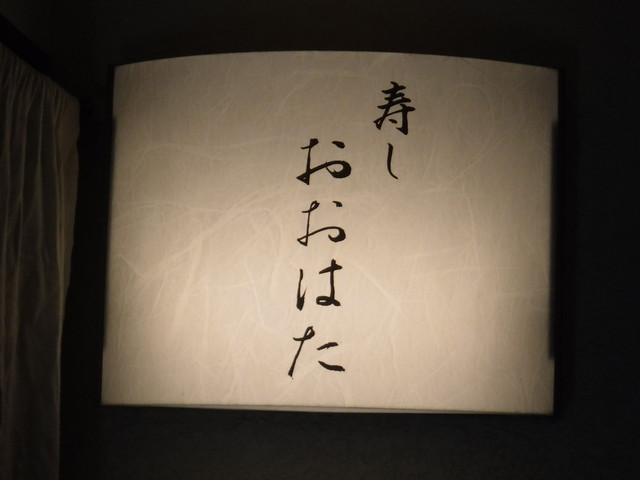 寿し
おおはた